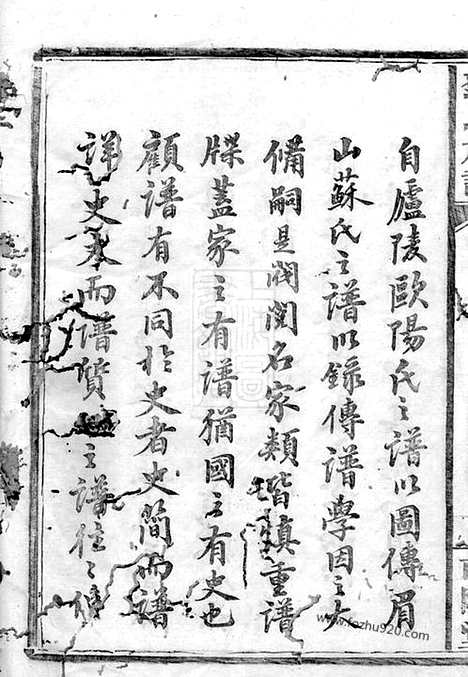 自廬陵歐陽氏之譜以圖傳眉
山蘇氏之譜以錄傳譜學因之大
備嗣是閥閱名家類皆慎重譜
牒蓋家之有譜猶國之有史也
顧譜有不同於史者史簡而譜
詳史文而譜質之譜往々
www.fozhu920.com